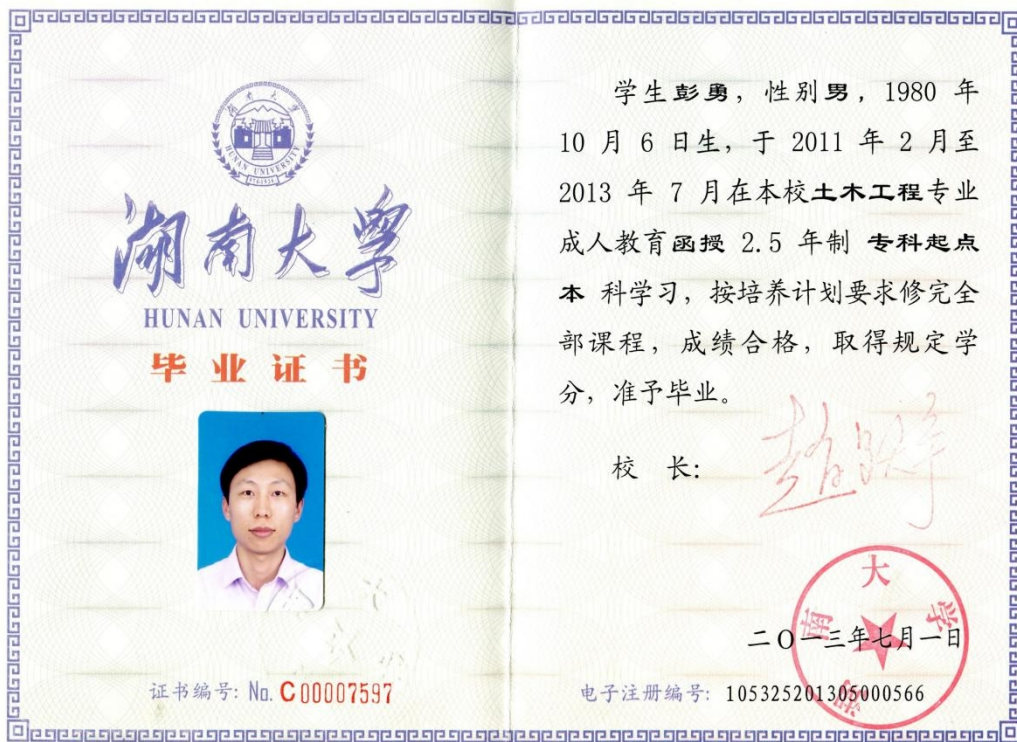 湖南大學
HUNAN UNIVERSITY
毕业证书
证书编号: No. C00007597
学生彭勇，性别男，1980 年
10 月 6 日生，于 2011 年 2 月至
2013 年 7 月在本校土木工程专业
成人教育函授 2.5 年制 专科起点
本 科学习，按培养计划要求修完全
部课程，成绩合格，取得规定学
分，准予毕业。
校 长:
湖南大学
二O一三年七月一日
电子注册编号: 105325201305000566